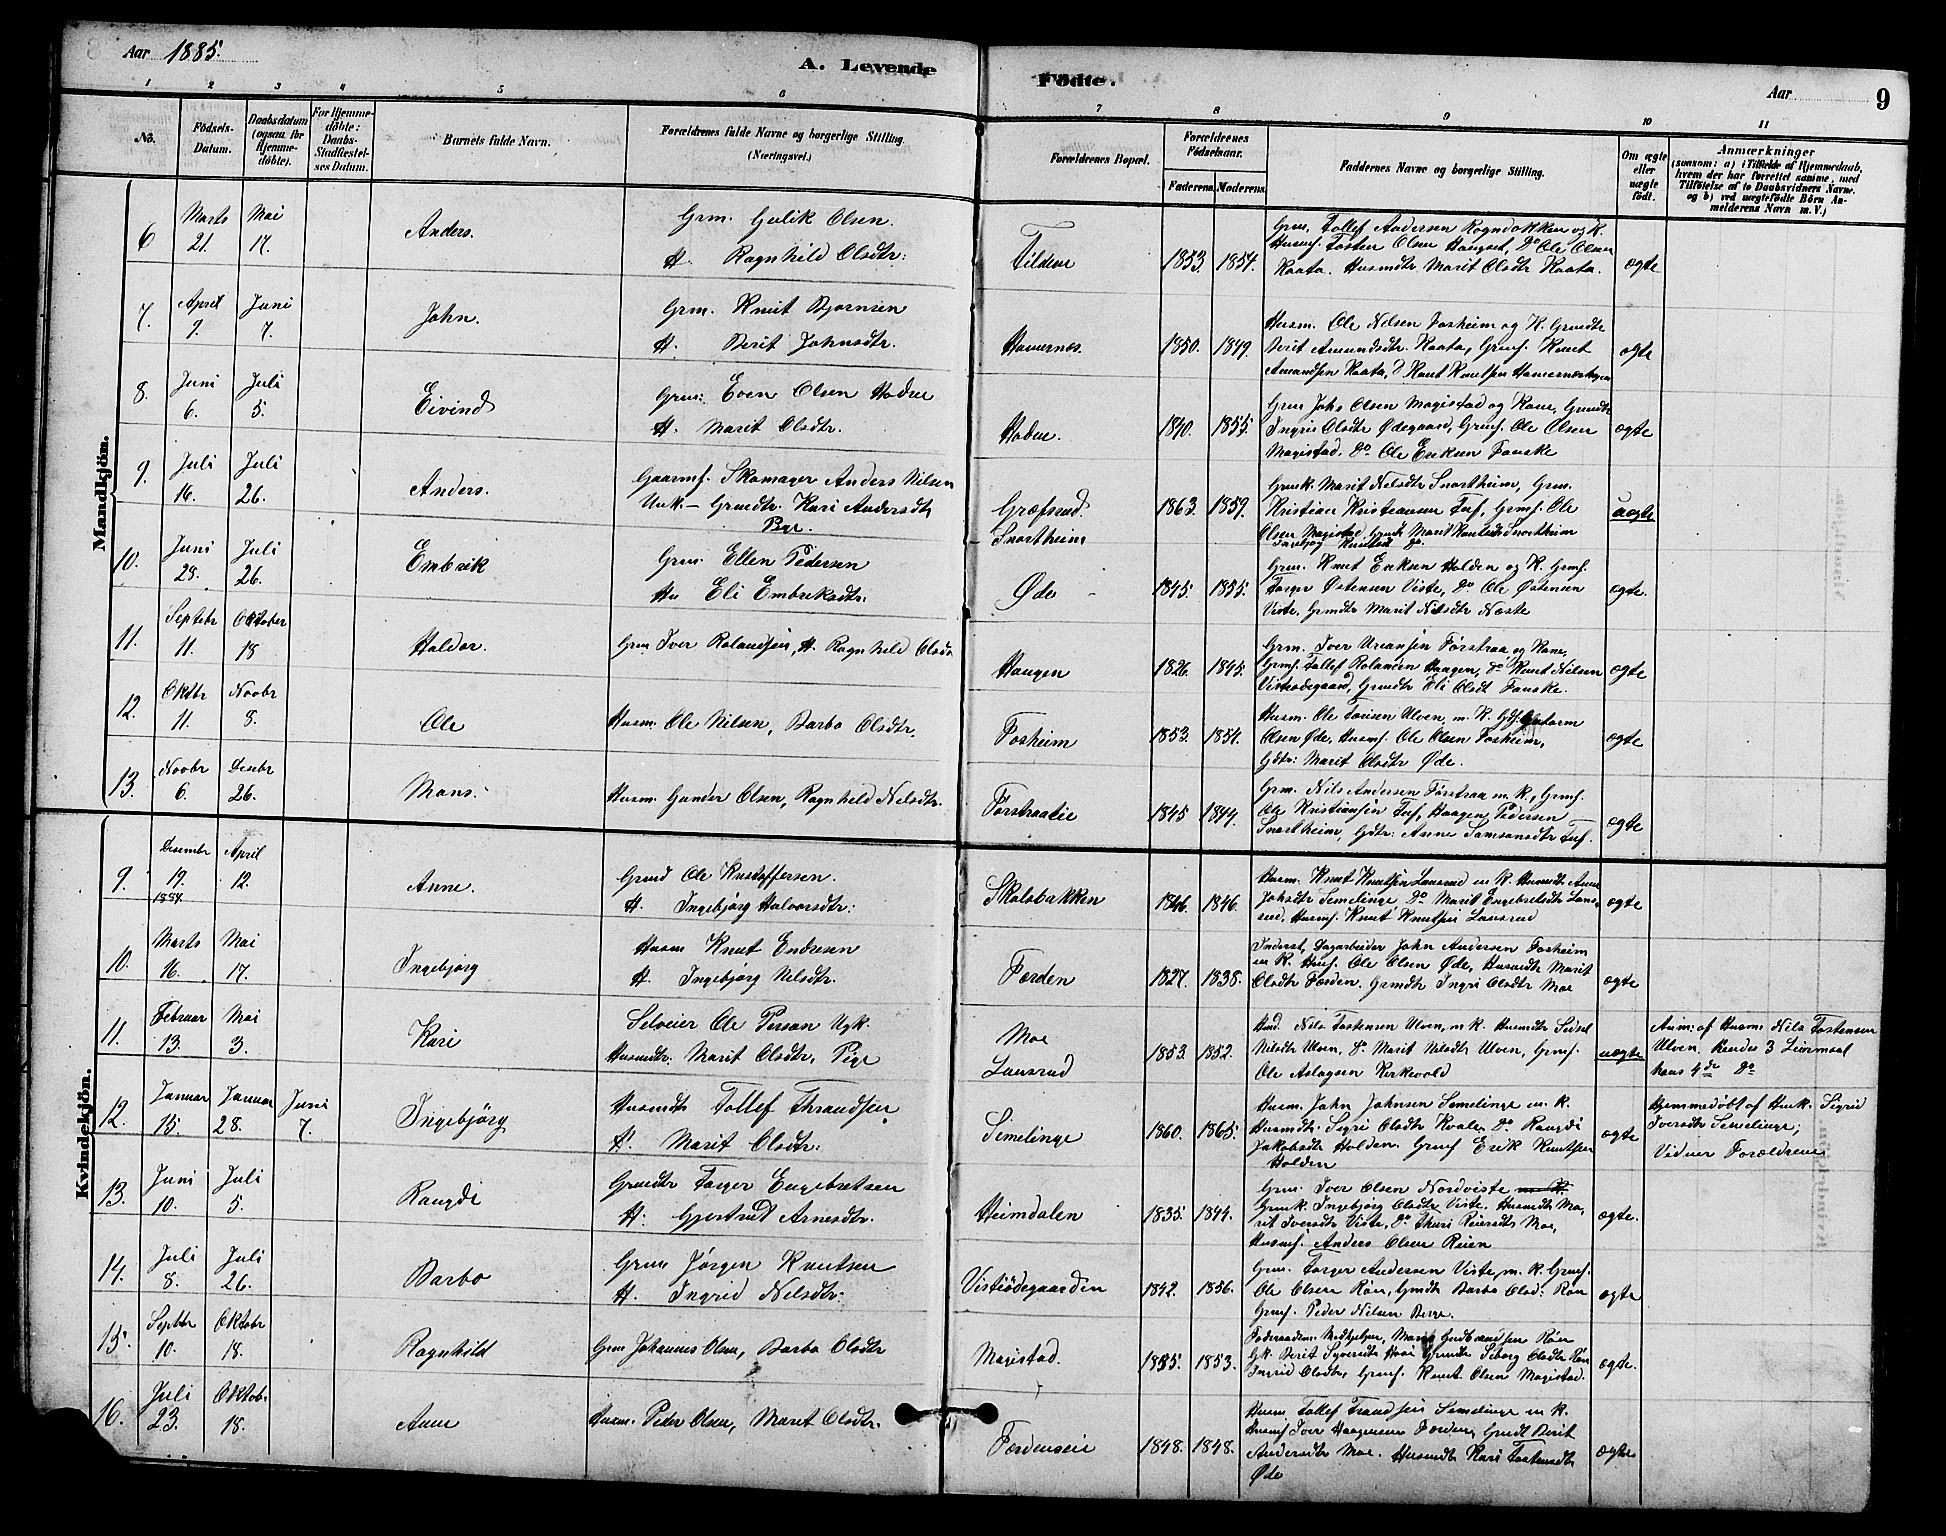 Aar 1885.
A. Levende Födte.
Aar 9
1 2 3 4 5 6 7 8 9 10 11
No.
Födsels-Datum.
Daabsdatum (ogsaa for Hjemmedöbte).
For Hjemmedöbte: Daabs-Stadfæstelses Datum.
Barnets fulde Navn.
Forældrenes fulde Navne og borgerlige Stilling.
(Næringsvei.)
Forældrenes Bopæl.
Forældrenes Födselsaar.
Faderens. Moderens.
Faddernes Navne og borgerlige Stilling.
Om ægte eller uægte födt.
Anmærkninger
(saasom: a) i Tilfælde af Hjemmedaab, hvem der har forrettet samme, med Tilföielse af to Daabsvidners Navne. og b) ved uægtefödte Börn Anmelderens Navn m. V.)
Mandkjön.
6 Marts 21. Mai 17. Anders.
Grm. Gulik Olsen
H. Ragnhild Olsdtr:
Tildene 1853. 1854.
Grm. Tollef Andersen Rogndokken og K.
Husmf. Tosten Olsen Haugset, Do Ole Olsen
Raata. Husmdtr Marit Olsdtr Raata.
ægte
7. April 9. Juni 7. John.
Grm. Knut Bjørnsen
H. Berit Johnsdtr.
Havernæs. 1850. 1849.
Husm. Ole Nilsen Fosheim og K. Grmdtr
Berit Amundsdtr. Raata, Grmf. Knut
Amundsen Raata, Knut Knutsen
ægte
8. Juni 6. Juli 5. Eivind
Grm: Even Olsen Hadne
H. Marit Olsdtr.
Hadne. 1840. 1855.
Grm Johs Olsen Magistad og Kone, Grmdtr
Ingri Olsdtr Ødegaard, Grmf. Ole Olsen
Magistad, Do Ole Eriksen Fauske
ægte
9. Juli 16. Juli 26. Anders.
Gaarmf. Skomager Anders Nilsen
Unk. — Grmdtr. Kari Andersdtr
Pige.
Græfsrud. Snortheim 1863. 1859.
Grmk. Marit Nelsdtr Snortheim, Grm.
Kristian Kristiansen Tuf, Grmf. Ole
Olsen Magistad, Grmdtr Marit Knutsdtr Snortheim
Ingebjørg Knutsdtr Do
uægte
10. Juni 28. Juli 26. Embrik
Grm. Ellen Pedersen
Hu Eli Embriksdtr.
Øde 1845. 1855.
Grm. Knut Eriksen Holden og K. Grmf.
Torger Østensen Viste, Do Ole Østensen
Viste, Grmdtr Marit Nilsdtr Næste
ægte.
11. Septebr 11. Oktober 18 Haldor.
Grm Iver Rolandsen, H. Ragnhild Olsdtr
Haugen 1826. 1845.
Grm. Iver Førstraa og Kone,
Grmf. Tollef Rolandsen Haugen, Do Knut Nilsen
Visteødegaard, Grmdtr Eli Olsdt Fauske.
ægte
12. Oktbr 11. Novbr 8. Ole
Husm. Ole Nilsen, Barbo Olsdtr.
Fosheim 1853. 1854.
Husm. Ole Torisen Ulven, m. K. Guttorm
Olsen Øde, Husmf. Ole Olsen Fosheim,
Gdtr: Marit Olsdtr Øde.
ægte
13. Novbr 6. Desebr 26. Mons.
Husm. Gunder Olsen, Ragnhild Nilsdtr.
Førstraalie 1845 1844.
Grm. Nils Andersen Førstraa m. K., Grmf.
Ole Kristiansen Tuf, Haagen Pedersen
Snortheim, Gdtr: Anne Samsonsdtr Tuf.
ægte
Kvindekjön.
9. Desembr 19. 1884. April 12. Anne.
Grmd Ole Kristoffersen.
H. Ingebjørg Halvorsdtr:
Skolebakken 1846. 1846.
Husm. Knut Knutsen Lausrud m K. Husmdtr Anne
Johsdtr Semelinge, Do Marit Engebretsdtr Laus-
rud, Husmf. Knut Knutsen Lausrud
ægte
10. Marts 16. Mai 17. Ingebjørg
Husm Knut Endresen
H. Ingebjørg Nilsdtr.
Færden 1827. 1838.
Inderst, Dagarbeider John Andersen Fosheim
m K. Husmf. Ole Olsen Øde, Husmdtr Marit
Olsdtr Færden. Grmdtr Ingri Olsdtr Moe
ægte
11. Februar 13. Mai 3. Kari
Selveier Ole Person Ugk.
Husmdtr. Marit Olsdtr, Pige
Moe Lausrud 1853. 1852.
Husm. Nils Tostensen Ulven, m K. Husmdtr Sidsel
Nilsdtr Ulven, Do Marit Nilsdtr Ulven, Grmf.
Ole Aslagsen Kirkevold
uægte
Anm: af Husm Nils Tostensen
Ulven. Hendes 3 Leiermaal
hans 4de Do
12. Januar 15. Januar 28. Juni 7. Ingebjørg
Husmdtr Tollef Thrandsen
H. Marit Olsdtr:
Semelinge 1860. 1865.
Husm. John Johnsen Semelinge m K.
Husmdtr. Sigri Olsdtr Kvale, Do Rangdi
Jakobsdtr Holden. Grmf Erik Knutsen
Holden
ægte
Hjemmedøbt af Husk. Sigrid
Iversdtr Semelinge;
Vidner Forældrene
13. Juni 10. Juli 5. Rangdi
Grmdtr Torger Engebretsen
H. Gjertrud Arnesdtr.
Heimdalen 1835. 1844.
Grm. Iver Olsen Nordviste m K.
Grmk. Ingebjørg Olsdtr Viste, Husmdtr Ma-
rit Iversdtr Viste, Do Thuri Reiersdtr Moe,
Husmf. Anders Olsen Reien
ægte.
14. Juli 8. Juli 26. Barbo
Grm Jørgen Knutsen
H. Ingrid Nelsdtr.
Vistiødegaarden 1842. 1856.
Grm. Torger Andersen Viste, m. K. Grmf.
Ole Olsen Røn, Grmdtr Barbo Olsd: Røn
Grmf. Peder Nilsen Berge
ægte
15. Septbr 10. Oktobr 18. Ragnhild
Grm Johannes Olsen, Barbo Olsdtr
Magistad. 1855. 1853.
Føderaadsm. Medhjelper, Mons Gudbrandsen Røn
Gk. Berit Syversdtr Grmdtr Siborg Olsdtr Røn
Ingrid Olsdtr, Grmf. Knut Olsen Magistad.
ægte.
16. Juli 23. Oktob. 18. Anne
Husm. Peder Olsen, Marit Olsdtr.
Færdenseie 1848. 1848.
Husm. Tollef Trandsen Semelinge m K.
Husmf Iver Haagensen Færden, Grmdt Berit
Andersdtr Moe. Husmdt Kari Tostensdtr
Øde
ægte